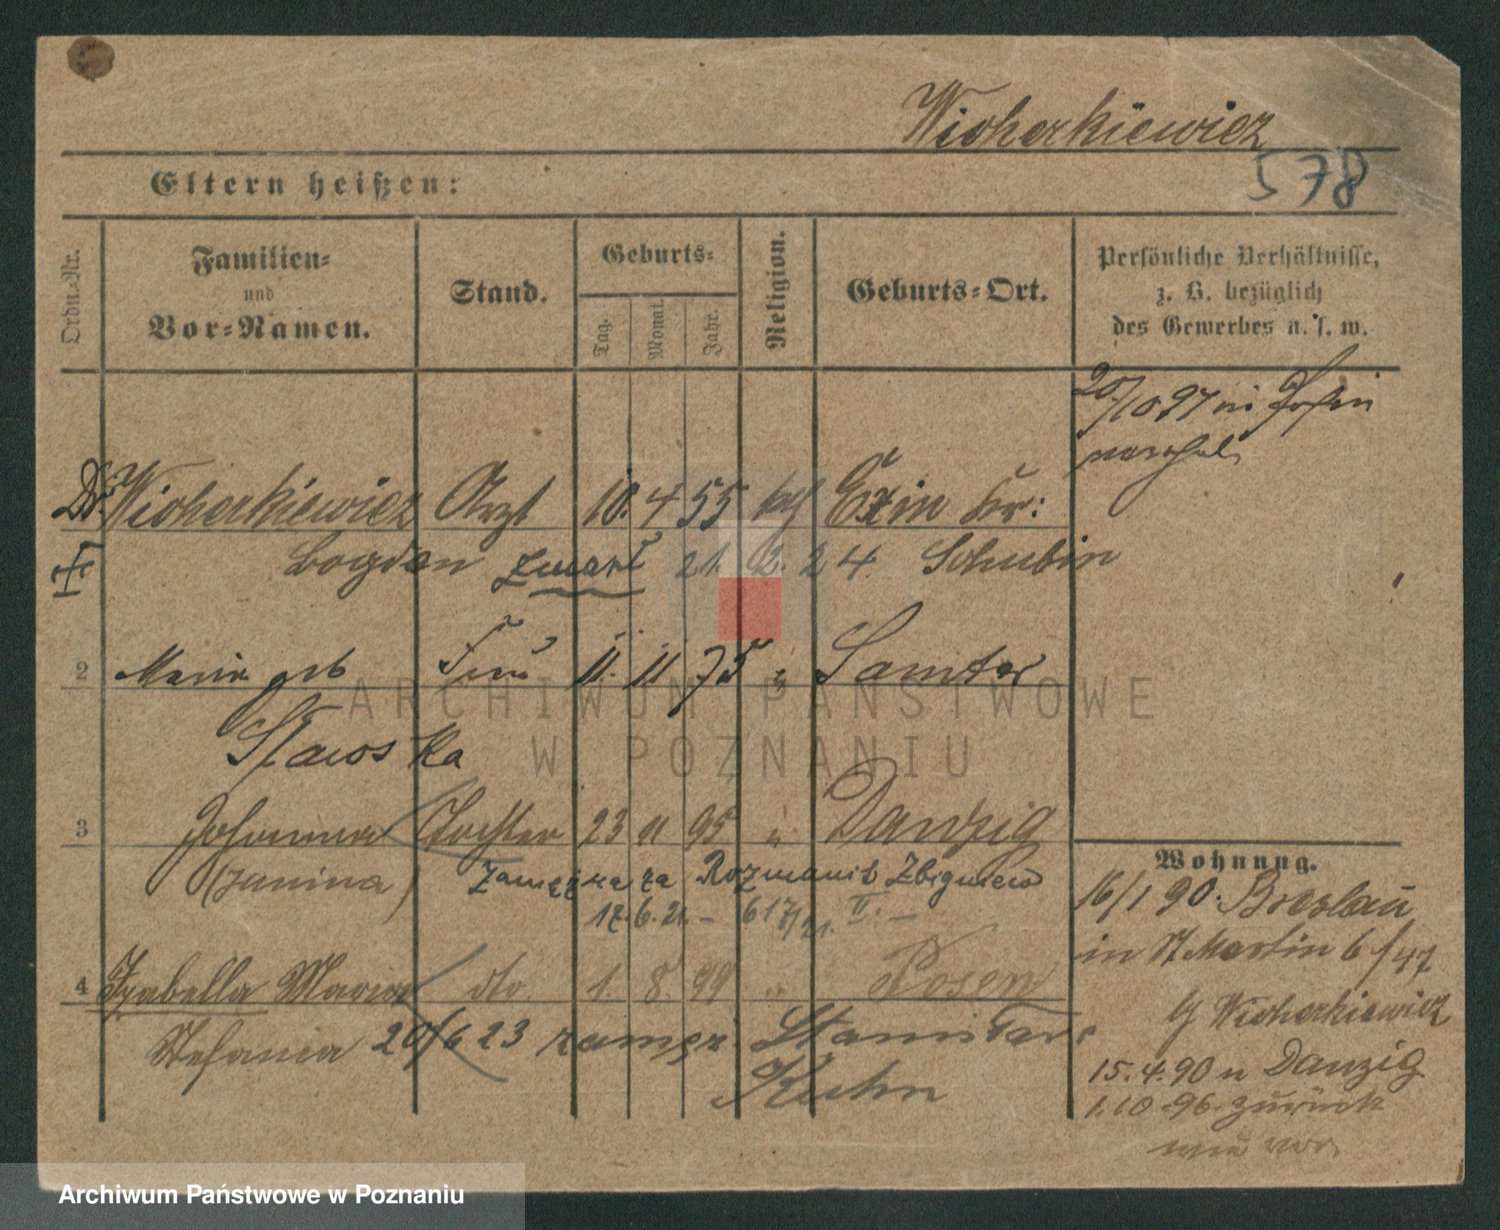 Wicherkiewicz
578
Eltern heißen:
Ordn.-Nr.
Familien- und Vor-Namen.
Stand.
Geburts-
Tag.
Monat.
Jahr.
Religion.
Geburts-Ort.
Persönliche Verhältnisse, z. B. bezüglich des Gewerbes u. s. w.
20/10 97 in
Dr. Wicherkiewicz Arzt 10. 4 55 kath Exin Kr:
Bogdan zmarł 21. 2. 24. Schubin
2 Maria geb Frau 11. 11 75 " Samter
Sławska
3 Johanna Tochter 23 11 95 " Danzig
(Janina) Zamężna za Rozmanit Zbigniew
17.6.21 – 617/21. II. –
4 Izabella Maria dto. 1. 8. 99 " Posen
Stefania 20/6 23 zamęż. Stanisław
Kuhn
Wohnung.
16/1 90. Breslau
in St Martin 6/47
Wicherkiewicz
15.4.90 n Danzig
1.10.96. zurück
wie vor.
ARCHIWUM PAŃSTWOWE
W POZNANIU
Archiwum Państwowe w Poznaniu